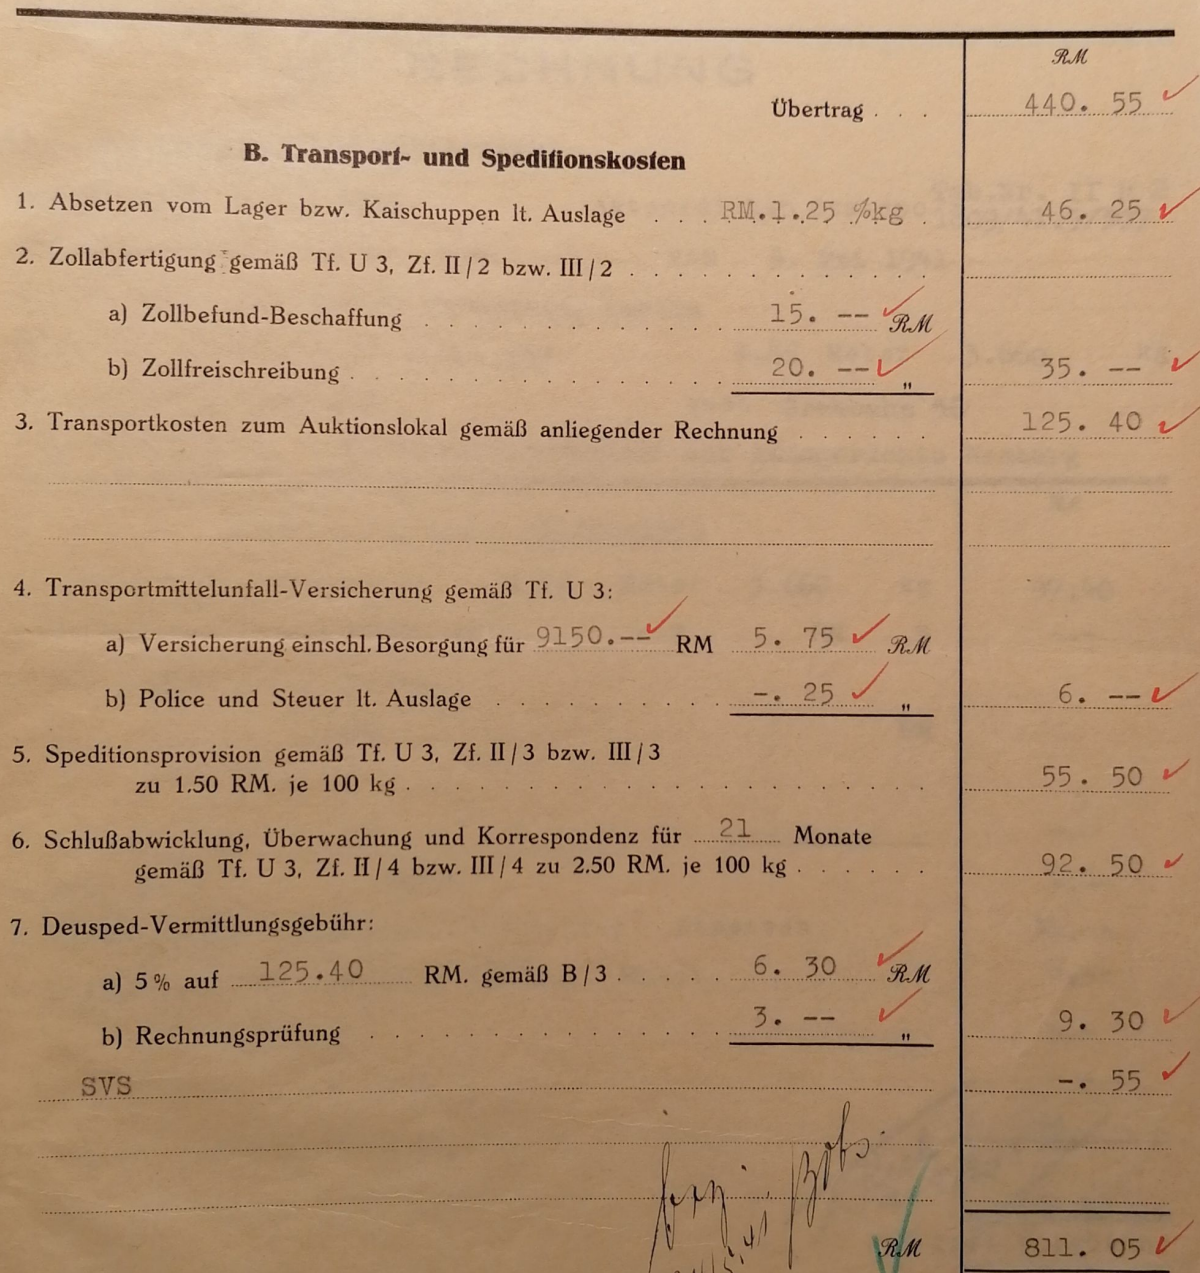 RM
Übertrag . . . 440. 55
B. Transport- und Speditionskosten
1. Absetzen vom Lager bzw. Kaischuppen lt. Auslage . . . RM.1.25 %kg . 46. 25
2. Zollabfertigung gemäß Tf. U 3, Zf. II/2 bzw. III/2 . . . . . . . . . . . .
a) Zollbefund-Beschaffung . . . . . . . . . . . 15. -- RM
b) Zollfreischreibung . . . . . . . . . . . . . 20. -- " 35. --
3. Transportkosten zum Auktionslokal gemäß anliegender Rechnung . . . . . . 125. 40
4. Transportmittelunfall-Versicherung gemäß Tf. U 3:
a) Versicherung einschl. Besorgung für 9150.-- RM 5. 75 RM
b) Police und Steuer lt. Auslage . . . . . . . . . -. 25 " 6. --
5. Speditionsprovision gemäß Tf. U 3, Zf. II/3 bzw. III/3
zu 1.50 RM. je 100 kg . . . . . . . . . . . . . . . . . . . . 55. 50
6. Schlußabwicklung, Überwachung und Korrespondenz für 21 Monate
gemäß Tf. U 3, Zf. II/4 bzw. III/4 zu 2.50 RM. je 100 kg . . . . . . 92. 50
7. Deusped-Vermittlungsgebühr:
a) 5% auf 125.40 RM. gemäß B/3 . . . . . 6. 30 RM
b) Rechnungsprüfung . . . . . . . . . . . . 3. -- " 9. 30
SVS -. 55
RM 811. 05